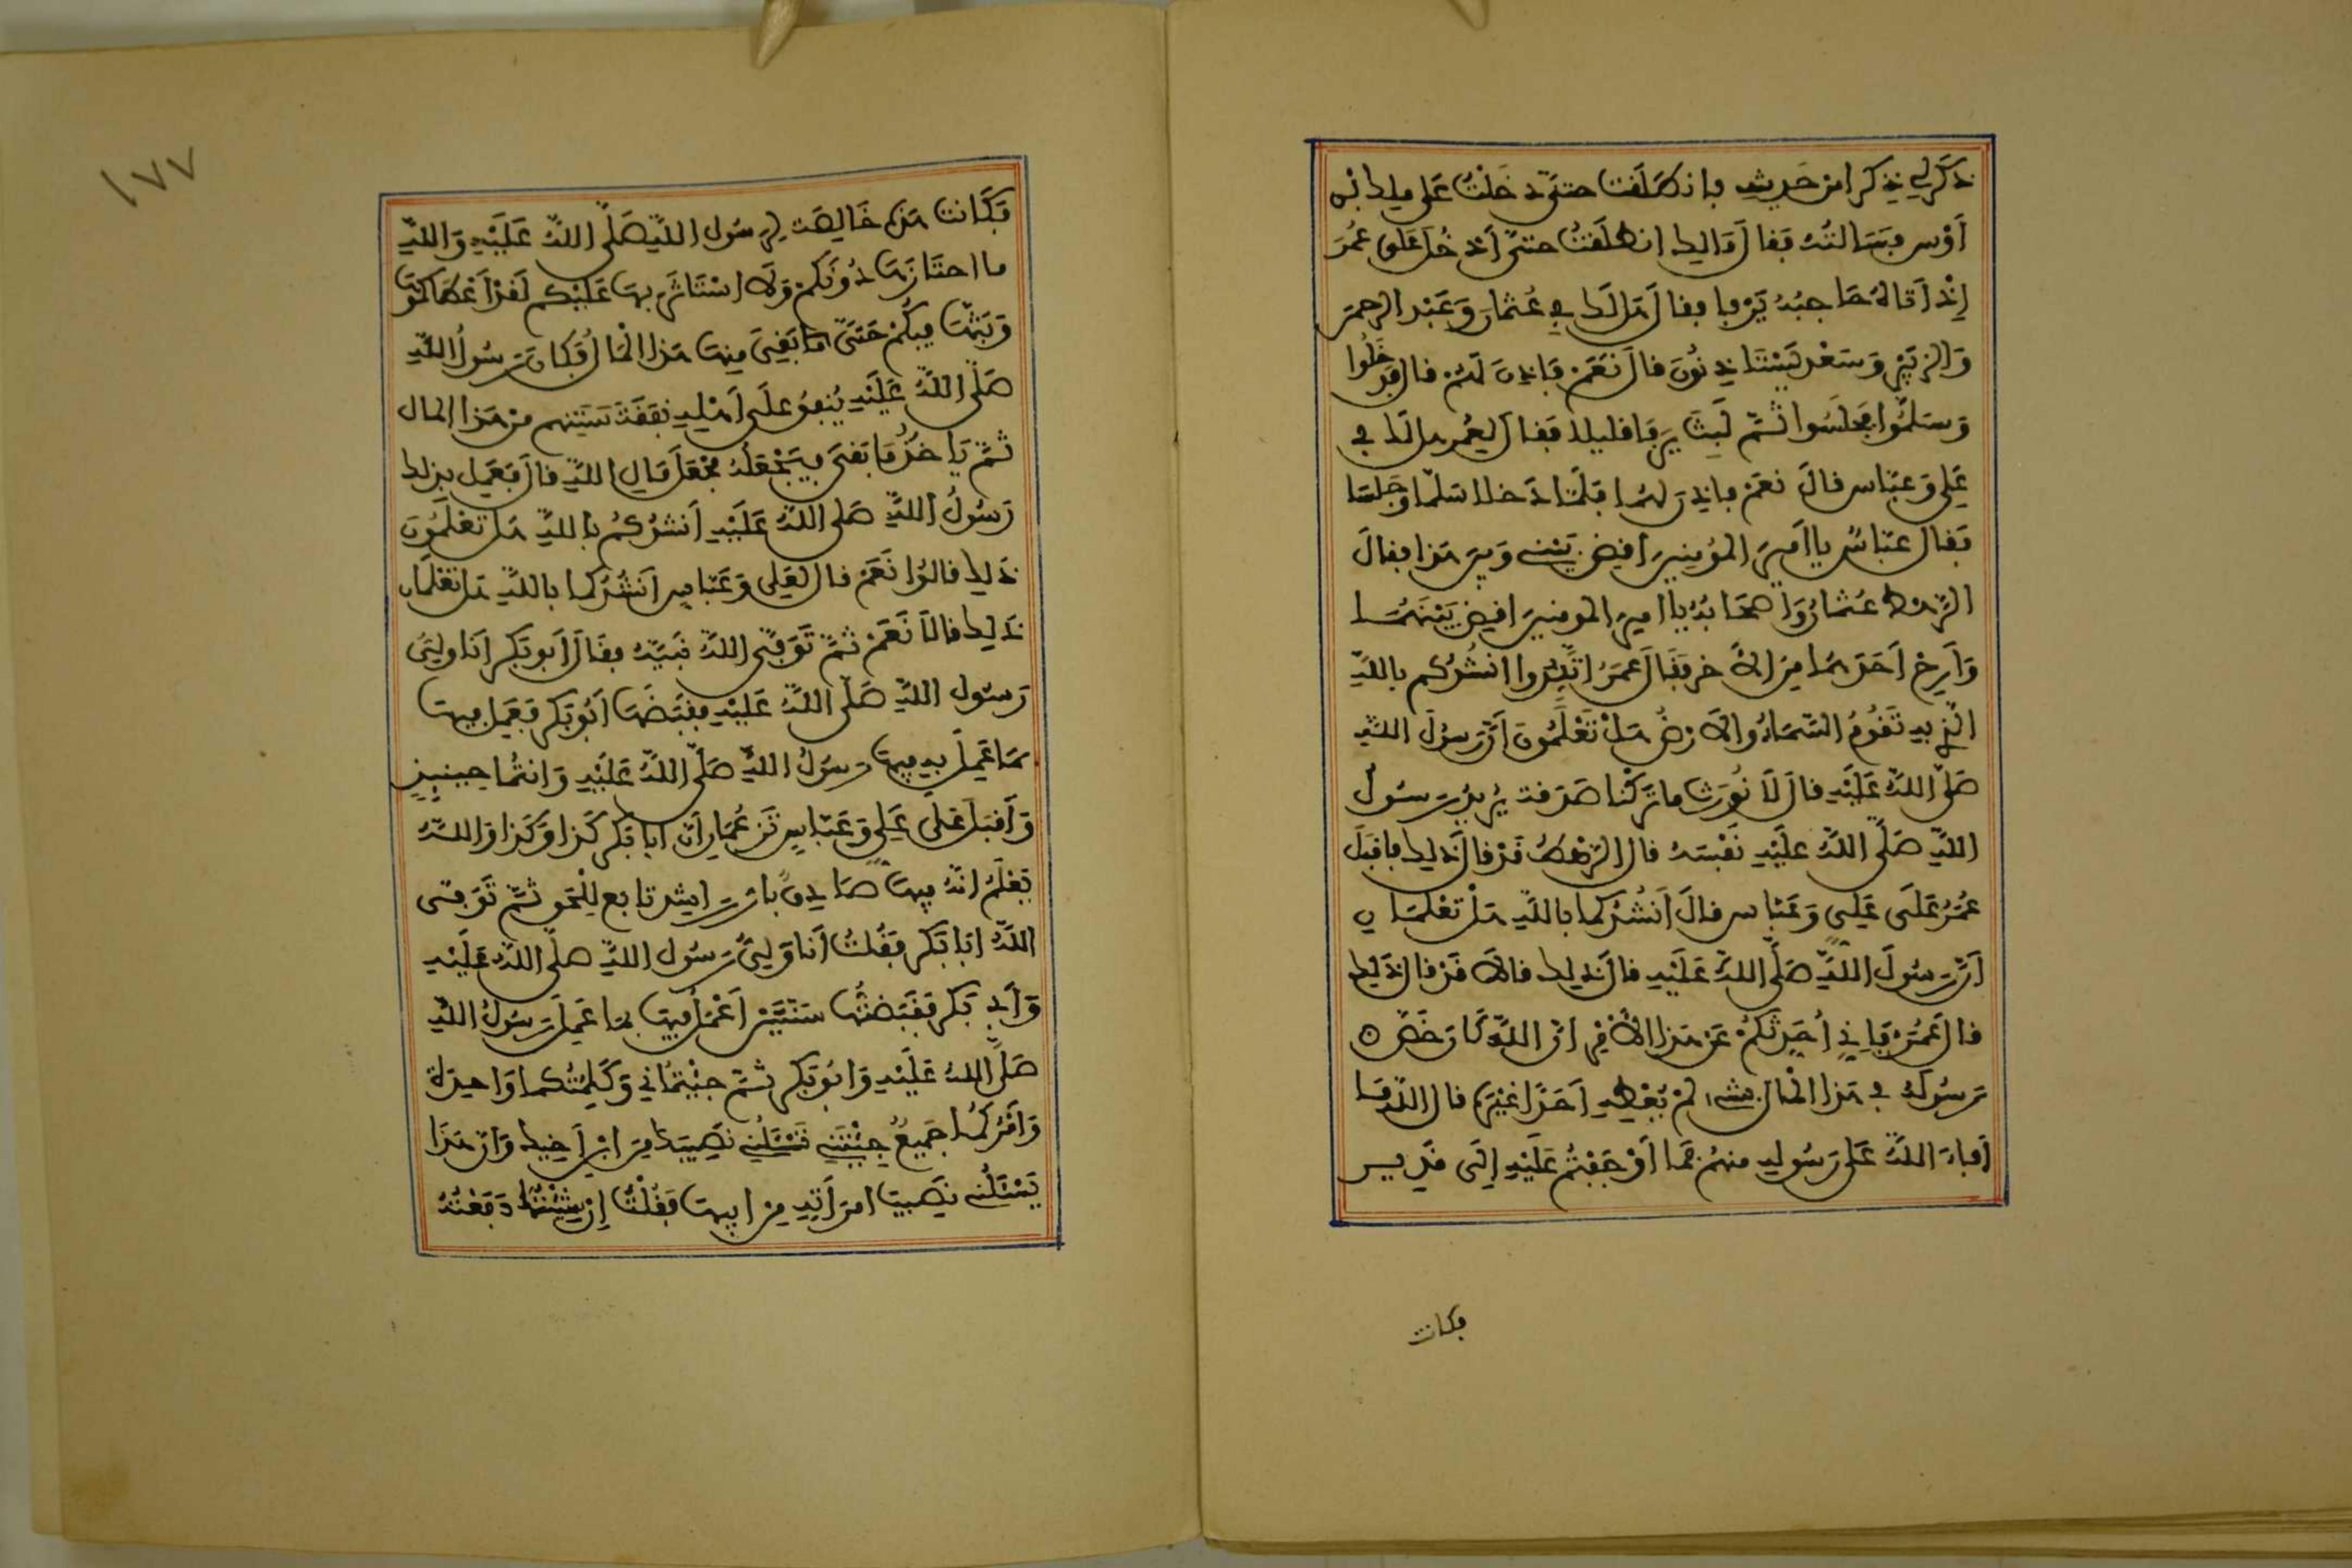 ذَكَرَ لِي ذِكْرًا مِنْ حَدِيثِهِ فانطَلَقت حتىّ دَخَلْتُ عَلى ملك ابن
أَوْسٍ فسَالتُهُ فَقالَ مَالِك انطلَقتُ حتىّ أَدْخُلَ عَلى عُمَرَ
إِذْ أَتَاهُ حَاجِبُهُ يَرْفا فقال هَل لَّك في عُثمانَ وَعَبْدِ الرحمنِ
وَالزبَيْرِ وَسَعْدٍ يَسْتَاذِنُونَ قالَ نَعَمْ فَاذِنَ لَهُمْ قال فدَخَلُوا
وَسَلَّمُوا فجَلَسُوا ثُمَّ لَبِثَ يَرفَا قليلا فَقال لِعُمر هل لَّك في
عَلِي وَعبّاس قالَ نَعَمْ فاذِن لهُما فلَمّا دَخلا سَلّما وَجَلسَا
فقال عبّاسٌ يا أَمِيرَ المؤمِنِينَ اقضِ بَيْنِي وَبَيْنَ هَذا فقالَ
الرَّهْط عُثمانُ وَأَصحَابُهُ يا امِيرَ المومنِينَ اقضِ بَيْنَهُمَا
وَأَرِحْ أَحَدَهُمَا مِنَ الأَخر فَقَالَ عمَرُ اتَّئِدُوا انشُدُكم باللَّهِ
الَّذِي بِهِ تَقُومُ السَّمَاءُ وَالأَرْضُ هَلْ تَعْلَمُونَ أَنَّ رَسُولَ اللَّهِ
صَلَّى اللَّهُ عَلَيْهِ قالَ لاَ نُورَثُ ما تَرَكْنا صَدَقة يُرِيدُ رَسُولُ
اللَّهِ صَلَّى اللَّهُ عَلَيْهِ نَفْسَهُ قال الرَّهْطُ قَدْ قالَ ذلِك فاقْبَلَ
عُمَرُ عَلَى عَلِيٍّ وَعَبّاس قالَ أَنشُدُكما باللَّهِ هَلْ تَعْلَمَانِ
أَنَّ رَسُولَ اللَّهِ صَلَّى اللَّهُ عَلَيْهِ قالَ ذلِك قالاَ قَدْ قال ذَلِك
قال عُمَرُ فَإِنِّي أُحَدِّثُكُمْ عَنْ هَذا الأَمْرِ انّ اللَّهَ كَانَ خَصَّ
رَسُولَهُ في هَذا المَالِ بشيء لمْ يُعْطِهِ أَحَدًا غيْرَهُ قال اللَّهُ مَا
أَفاءَ اللَّهُ عَلى رَسُولِهِ منهُمْ فَما أَوْجَفْتُمْ عَلَيْهِ إلَى قَدِير
فكانت
١٧٧
فَكَانت هَذِهِ خَالِصَة لِرَسُول اللَّهِ صَلَّى اللَّهُ عَلَيْهِ وَاللَّهِ
ما احتَازَهَا دُونَكمْ وَلاَ اسْتَاثَرَ بهَا عَلَيْكُم لَقَدْ أَعْطَاكمُوهَا
وَبَثّهَا فِيكُمْ حَتىَّ مَا بَقِيَ مِنهَا هَذا المَالُ فَكانَ رَسُولُ اللَّهِ
صَلَّى اللَّهُ عَلَيْهِ يُنفِقُ عَلَى أَهْلِهِ نَفَقَةَ سَنَتِهم مِنْ هَذا المال
ثمَّ يَاخُذُ مَا بَقِيَ فيَجْعَلُهُ مَجْعَلَ مَالِ اللَّهِ قالَ فَعَمِلَ بذلك
رَسُولُ اللَّهِ صَلى اللَّهُ عَلَيْهِ أَنشُدُكُمْ باللَّهِ هَل تَعْلَمُونَ
ذَلِك قالوُا نَعَمْ قال لعَلِي وَعَبّاسٍ أَنْشُدُكما باللَّهِ هَل تَعْلَمَانِ
ذَلِك قالاَ نَعَمْ ثُمَّ تَوَفَّى اللَّهُ نَبيَّهُ فقَالَ أَبو بَكرٍ أَنَا وَلِيُّ
رَسُولِ اللَّهِ صَلَّى اللَّهُ عَلَيْهِ فَقَبَضَهَا أَبُو بَكر فَعَمِل فِيهَا
بمَا عَمِلَ بِهِ فِيهَا رَسُولُ اللَّهِ صَلَّى اللَّهُ عَلَيْهِ وَانتُما حِينَئِذٍ
وَأَقبَلَ عَلَى عَلِي وَعَبّاسٍ تَزعُمَانِ أَنّ أبا بَكر كَذا وَكَذا وَاللَّهُ
يَعْلَمُ انّهُ فِيهَا صَادِقٌ بارٌّ رَاشِد تابع لِلْحَقِ ثمّ تَوَفى
اللَّهُ ابا بَكر فقُلتُ أَنَا وَلِيُّ رَسُولِ اللَّهِ صَلَّى اللَّهُ عَلَيْهِ
وَأَبِي بَكر فَقَبَضتُها سَنَتَيْنِ أَعْمَلُ فِيها بمَا عَمِلَ رَسُولُ اللَّهِ
صَلَّى اللَّهُ عَلَيْهِ وَابُو بَكر ثمَّ جِئْتمَاني وَكَلِمَتُكما وَاحِدَة
وَأَمْرُكمَا جَمِيعٌ جِئْتَني تَسْئَلُني نَصِيبَك مِنَ ابْنِ أَخِيك وَأَتَى هَذَا
يَسْئَلُني نَصِيبَ امرَأَتِهِ مِن ابِيهَا فَقُلْتُ إِن شِئْتُمَا دَفَعْتُهُ